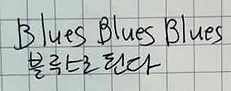 Blues Blues Blues
블루스로 된다